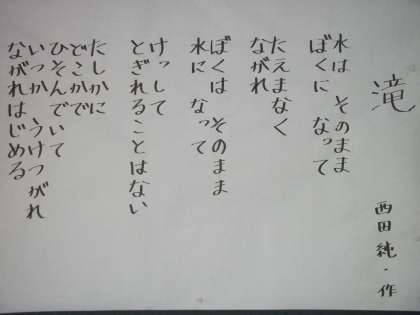 滝
西田 純・作
水は そのまま
ぼくに なって
たえまなく
ながれ
ぼくは そのまま
水に なって
けっして
とぎれることはない
たしかに
どこかで
ひそんでいて
いつか うけつがれ
ながれはじめる